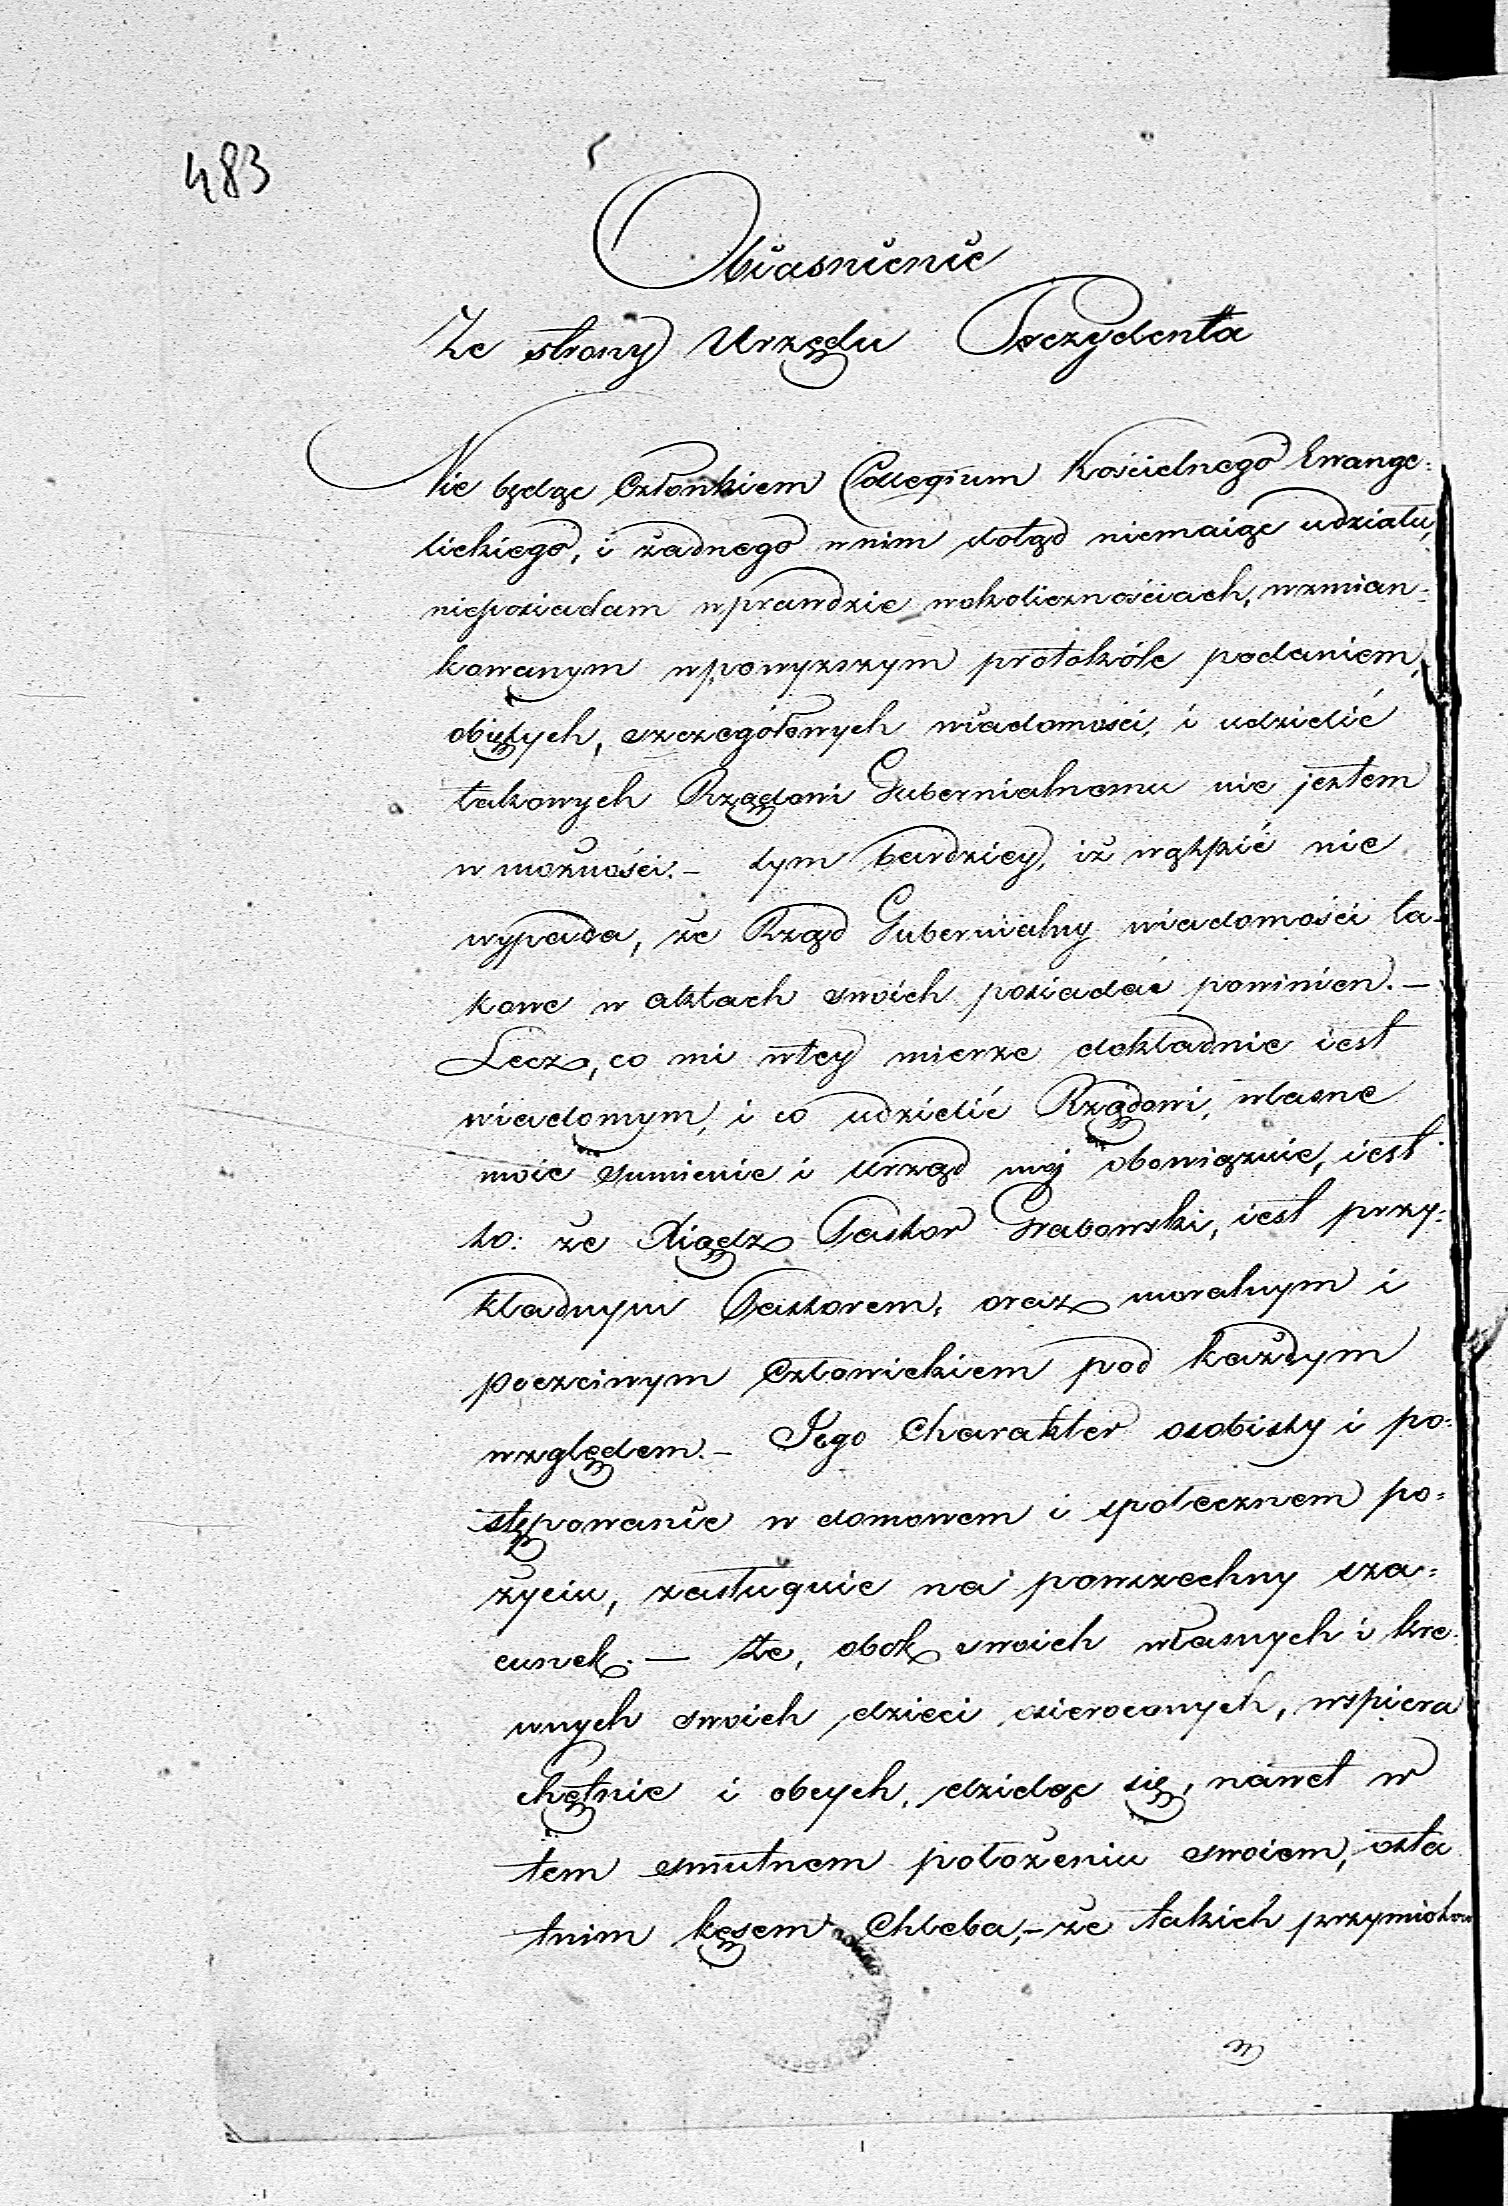 483
Obiasnienie
Ze strony Urzędu Prezydenta
Nie będąc Członkiem Collegium Kościelnego Ewange-
lickiego, i żadnego w nim dotąd niemaiąc udziału,
nieposiadam wprawdzie wokolicznościach, wzmian-
kowanym wpowyższym protokóle podaniem,
obiętych, szczegółowych wiadomości, i udzielić
takowych Rządowi Gubernialnemu nie jestem
w możności. – tym bardziey, iż wątpić nie
wypada, że Rząd Gubernialny wiadomości ta-
kowe w aktach swoich posiadać powinien. –
Lecz, co mi wtey mierze dokładnie iest
wiadomym, i co udzielić Rządowi, własne
moie sumienie i Urząd mój obowiązuie, iest
to: że Xiądz Pastor Grabowski, iest przy-
kładnym Pastorem, oraz moralnym i
poczciwym Człowiekiem pod każdym
względem. – Jego Charakter osobisty i po-
stępowanie w domowem i społecznem po-
życiu, zasługuie na powszechny sza-
cunek. – Że, obok swoich własnych i kre-
wnych swoich dzieci osieroconych, wspiera
chętnie i obcych, dzieląc się, nawet w
tem smutnem położeniu swoiem, osta
tnim kęsem Chleba, – że takich przymiotow